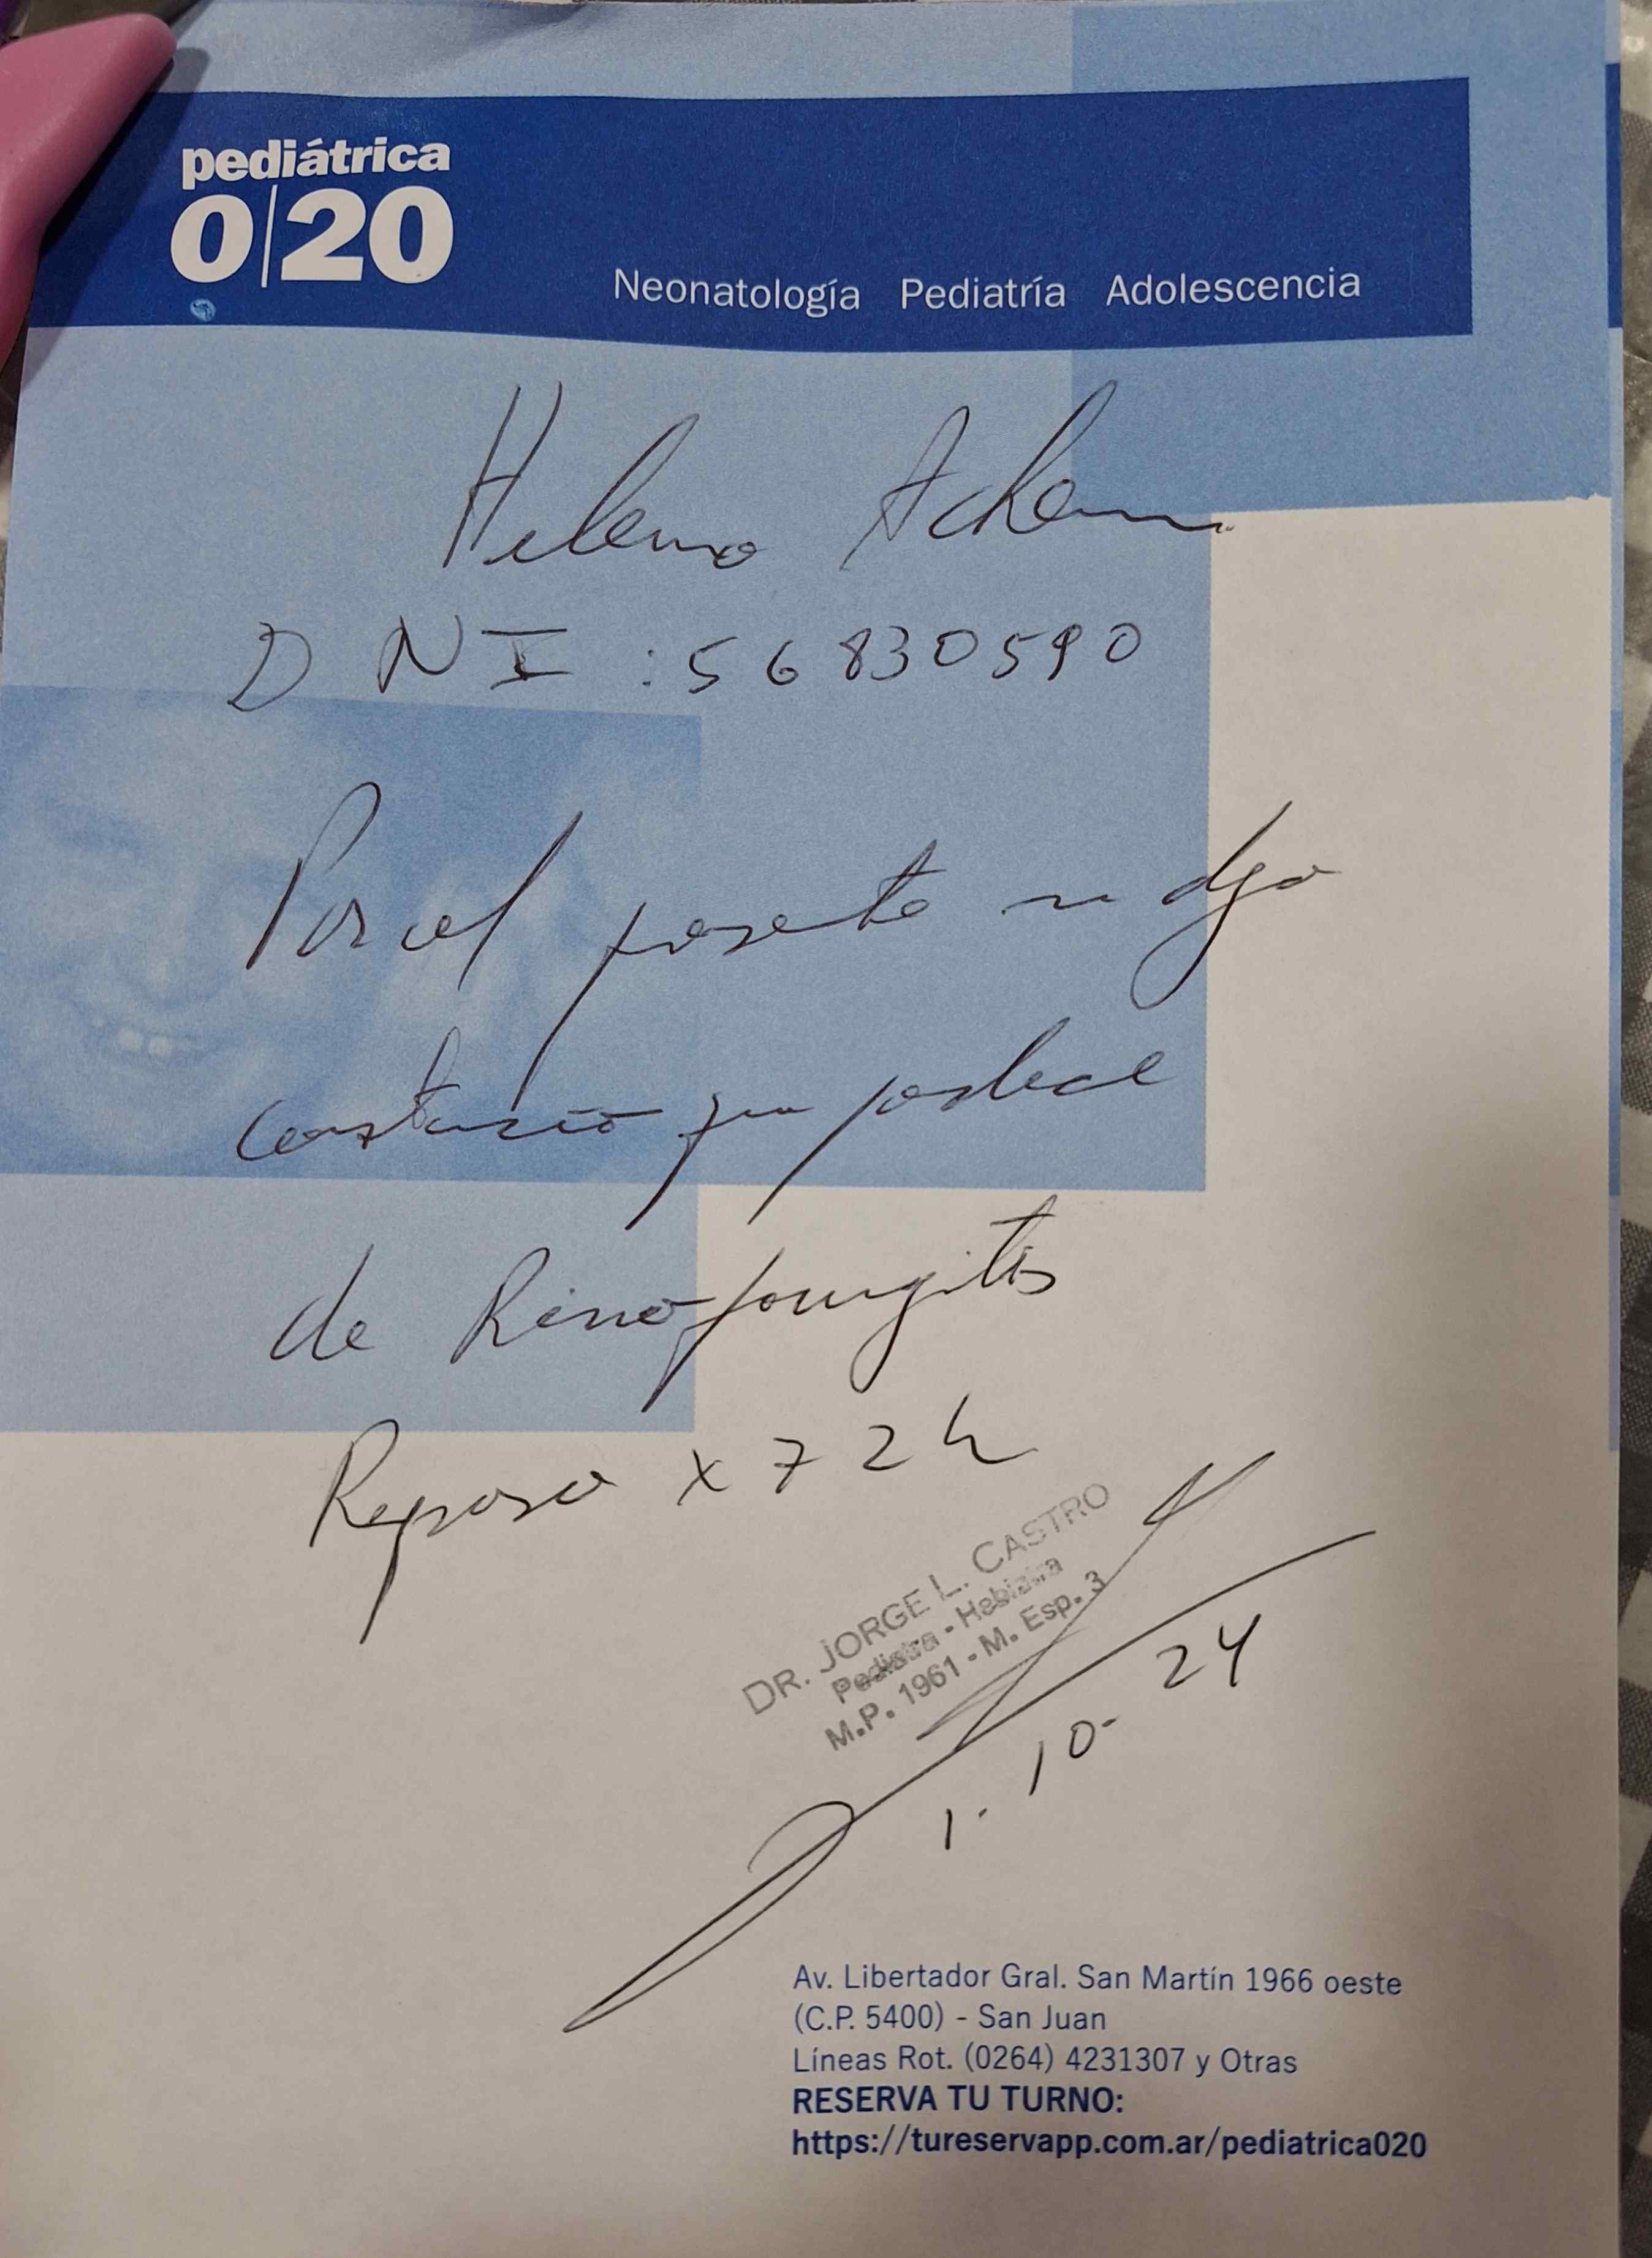 pediátrica
0|20
Neonatología Pediatría Adolescencia
Helena Achem
DNI : 56830590
Por el presente se deja
constancia que padece
de Rinofaringitis
Reposo x 72 h
DR. JORGE L. CASTRO
Pediatra - Hebiatra
M.P. 1961 - M. Esp. 3
1. 10- 24
Av. Libertador Gral. San Martín 1966 oeste
(C.P. 5400) - San Juan
Líneas Rot. (0264) 4231307 y Otras
RESERVA TU TURNO:
https://tureservapp.com.ar/pediatrica020